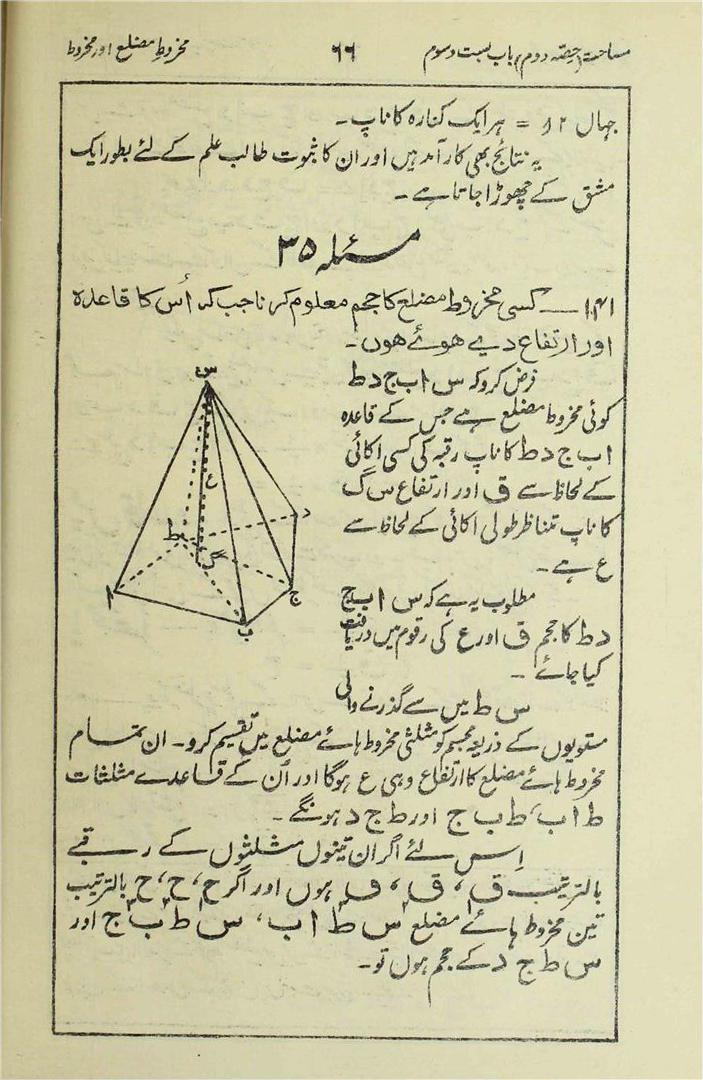 مساحت (حصّہ دوم) باب بست و سوم ۶۶ مخروطِ مضلع اور مخروط
جہاں ۲ا = ہر ایک کنارہ کا ناپ۔
یہ نتائج بھی کارآمد ہیں اور ان کا ثبوت طالب علم کے لئے بطور ایک
مشق کے چھوڑا جاتا ہے۔
مسئلہ ۳۵
۱۴۱ — کسی مخروط مضلع کا حجم معلوم کرنا جب کہ اُس کا قاعدہ
اور ارتفاع دیے ہوئے ہوں۔
فرض کرو کہ س ا ب ج د ط
کوئی مخروط مضلع ہے جس کے قاعدہ
ا ب ج د ط کا ناپ رقبہ کی کسی اکائی
کے لحاظ سے ق اور ارتفاع س گ
کا ناپ متناظر طولی اکائی کے لحاظ سے
ع ہے۔
مطلوب یہ ہے کہ س ا ب ج
د ط کا حجم ق اور ع کی رقوم میں دریافت
کیا جائے۔
س ط میں سے گذرنے والی
مستویوں کے ذریعہ مجسم کو مثلثی مخروط ہائے مضلع میں تقسیم کرو۔ ان تمام
مخروط ہائے مضلع کا ارتفاع وہی ع ہوگا اور اُن کے قاعدے مثلثات
ط ا ب، ط ب ج اور ط ج د ہونگے۔
اِس لئے اگر ان تینوں مثلثوں کے رقبے
بالترتیب ق، ق، ق ہوں اور اگر ح، ح، ح بالترتیب
تین مخروط ہائے مضلع س ط ا ب، س ط ب ج اور
س ط ج د کے حجم ہوں تو۔
س
ع
د
ط
گ
ج
ا
ب